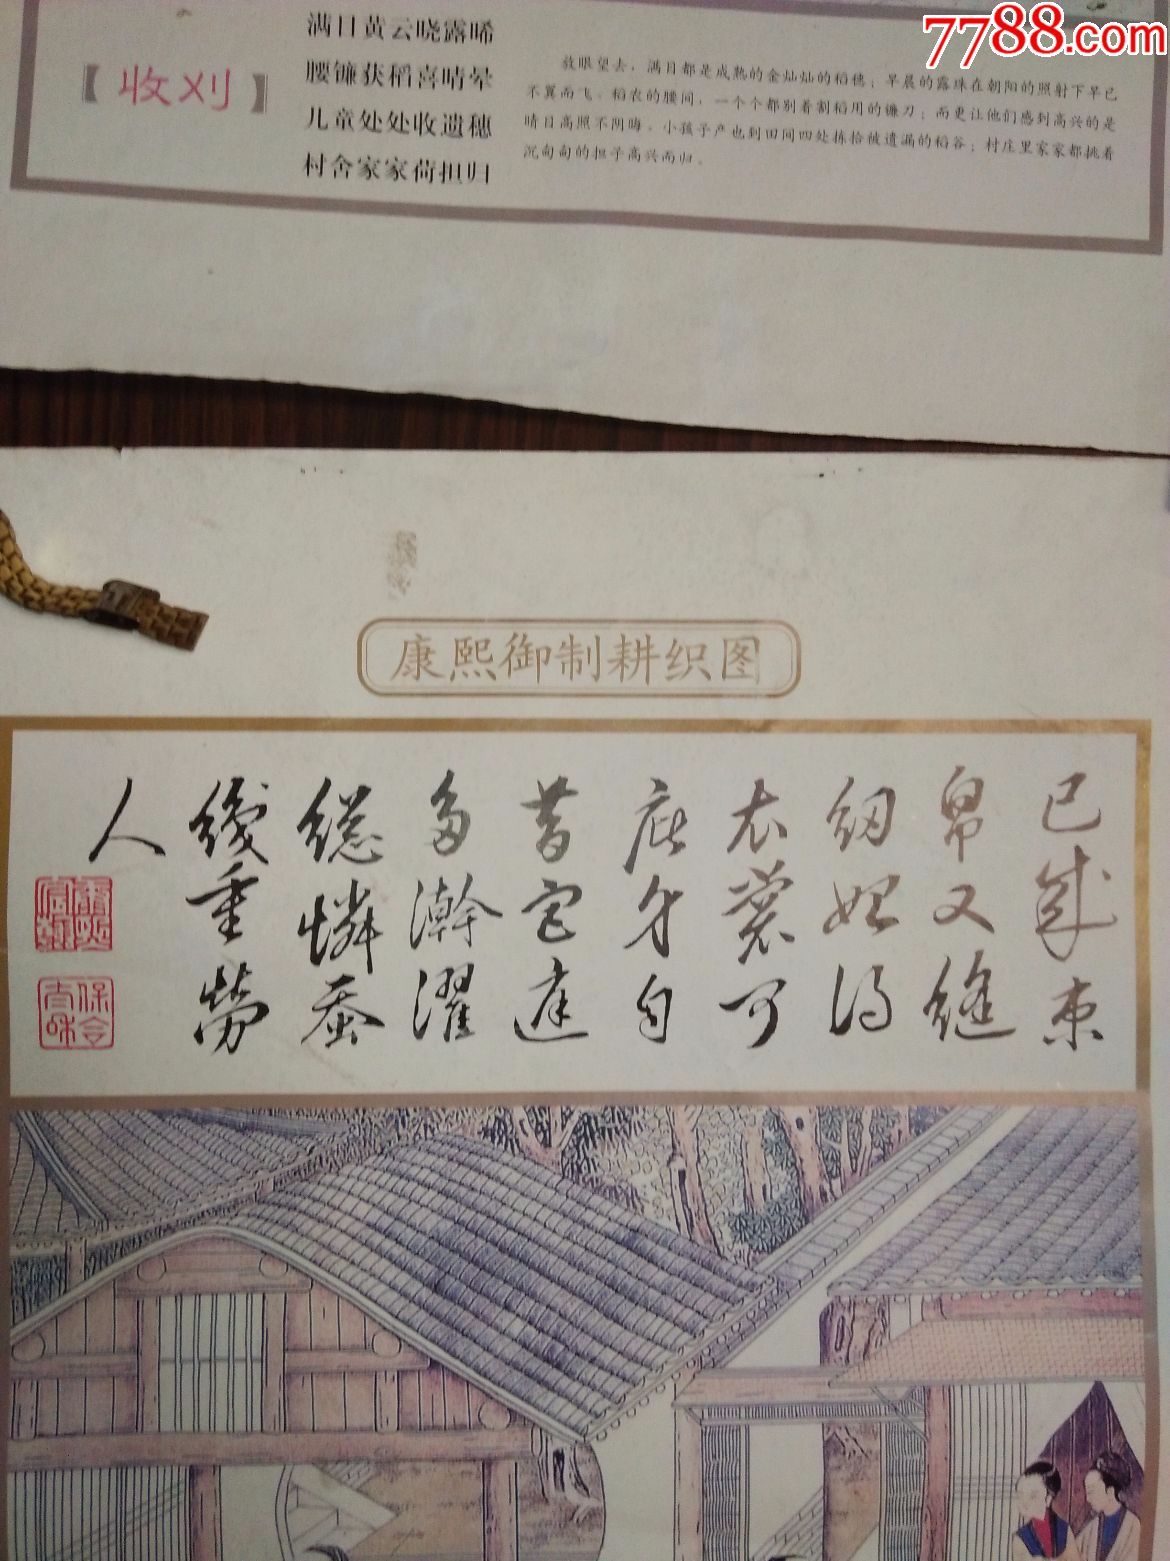 7788.com
【收刈】
满目黄云晓露晞
腰镰获稻喜晴晕
儿童处处收遗穗
村舍家家荷担归
放眼望去，满目都是成熟的金灿灿的稻穗；早晨的露珠在朝阳的照射下早已
不翼而飞。稻农的腰间，一个个都别着割稻用的镰刀；而更让他们感到高兴的是
晴日高照不阴晦。小孩子产也到田间四处拣拾被遗漏的稻谷；村庄里家家都挑着
沉甸甸的担子高兴而归。
康熙御制耕织图
已成束
帛又縫
紉始得
衣裳可
庇身自
昔宫庭
多澣濯
總憐蚕
織重勞
人
康熙宸翰
保合太和